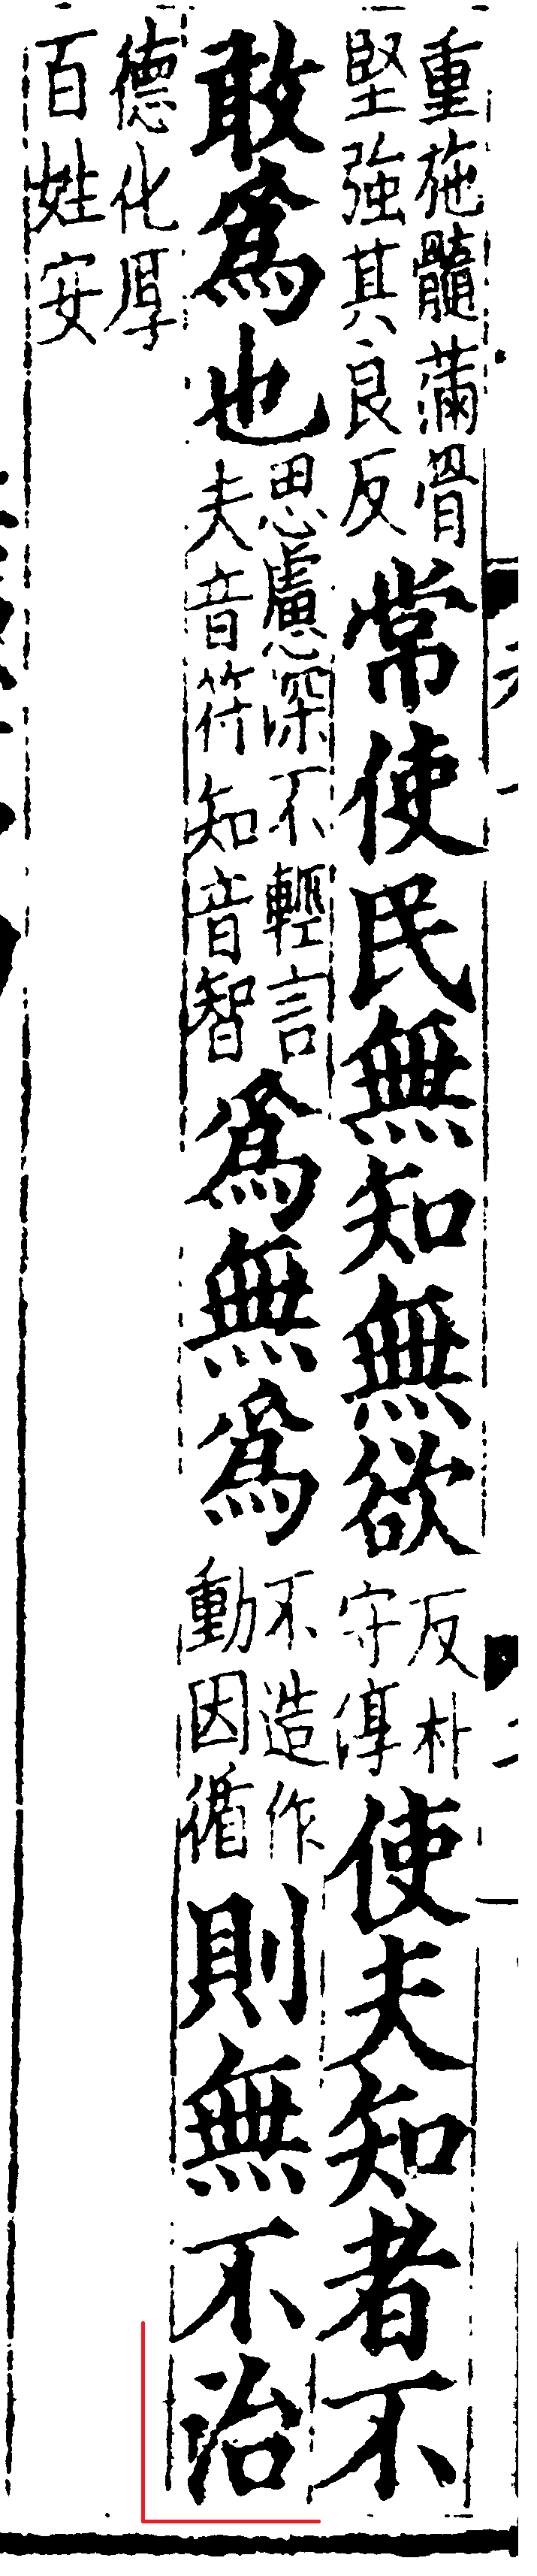 重施髓滿骨堅強其良反常使民無知無欲反朴守淳使夫知者不
敢爲也思慮深不輕言夫音符知音智爲無爲不造作動因循則無不治
德化厚百姓安